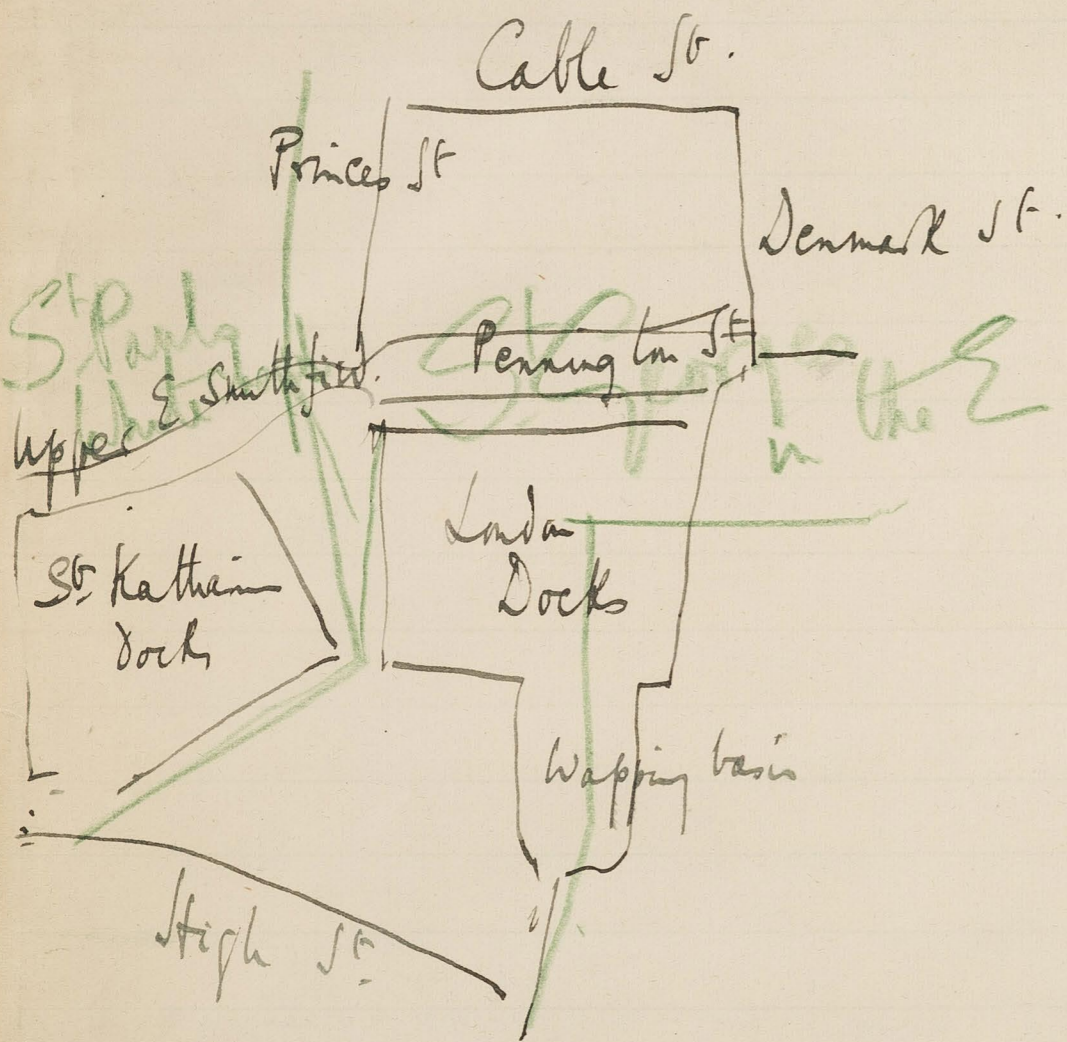 Cable St.
Princes St
Denmark St.
St Pauls
St George
in
the E
Pennington St
Upper E Smithfield.
London
Docks
St. Katharine
Docks
Wapping basin
High St.